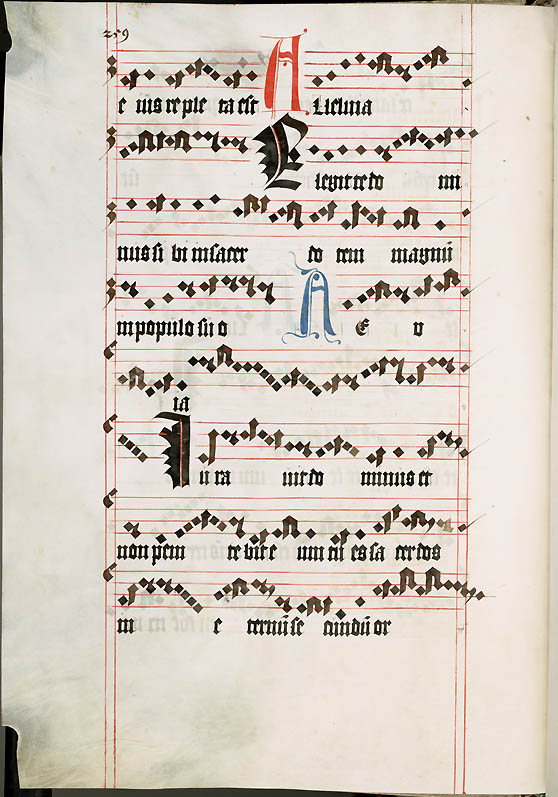 259
e iusreple ta est Alleluia
Elegit te do mi
nus si bi insacer do tem magnū
inpopulo su o A E V
ia
Iu ra uit do minus et
non peni te bit e um tū es sa cerdos
in e ternū se cundū or